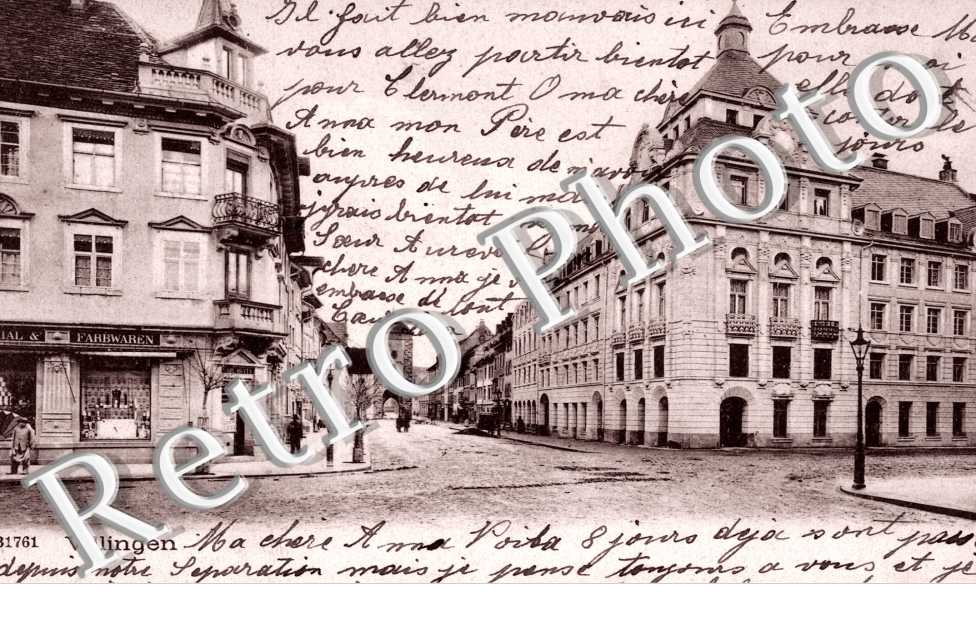 Il fait bien mauvais ici
vous allez partir bientot
pour Clermont O ma chère
Anna mon Père est
bien heureux de m'avoir
aupres de lui ma
j'irais bientot
Sœur Aurevoi
chere Anna je v
embrasse de tout
Embrasse Ma
pour moi
elle doit
jours
IAL & FARBWAREN
Retro Photo
31761 Villingen
Ma chere Anna Voila 8 jours deja sont pass
depuis notre Separation mais je pense toujours a vous et je